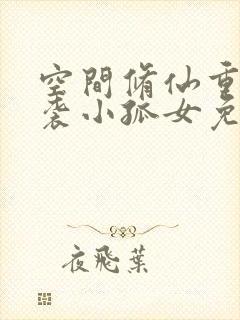 空間脩仙重
袭小孤女免
夜飛葉